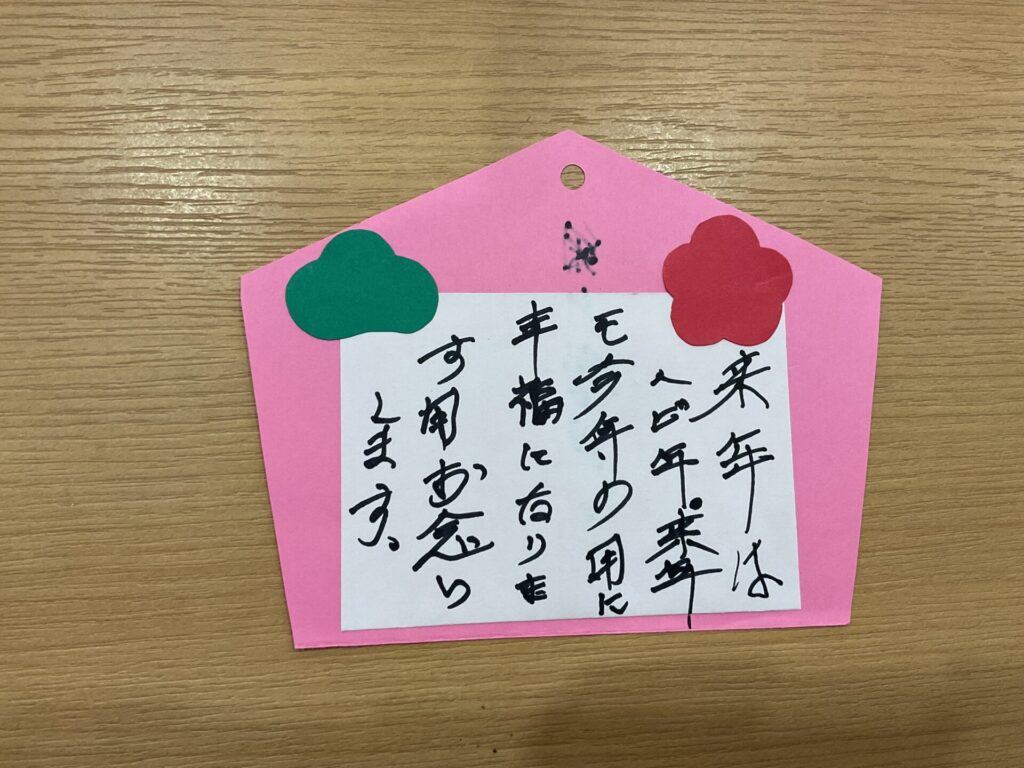 来年は
ヘビ年。来年
モ今年の用に
幸福になりま
す用お念い
します。